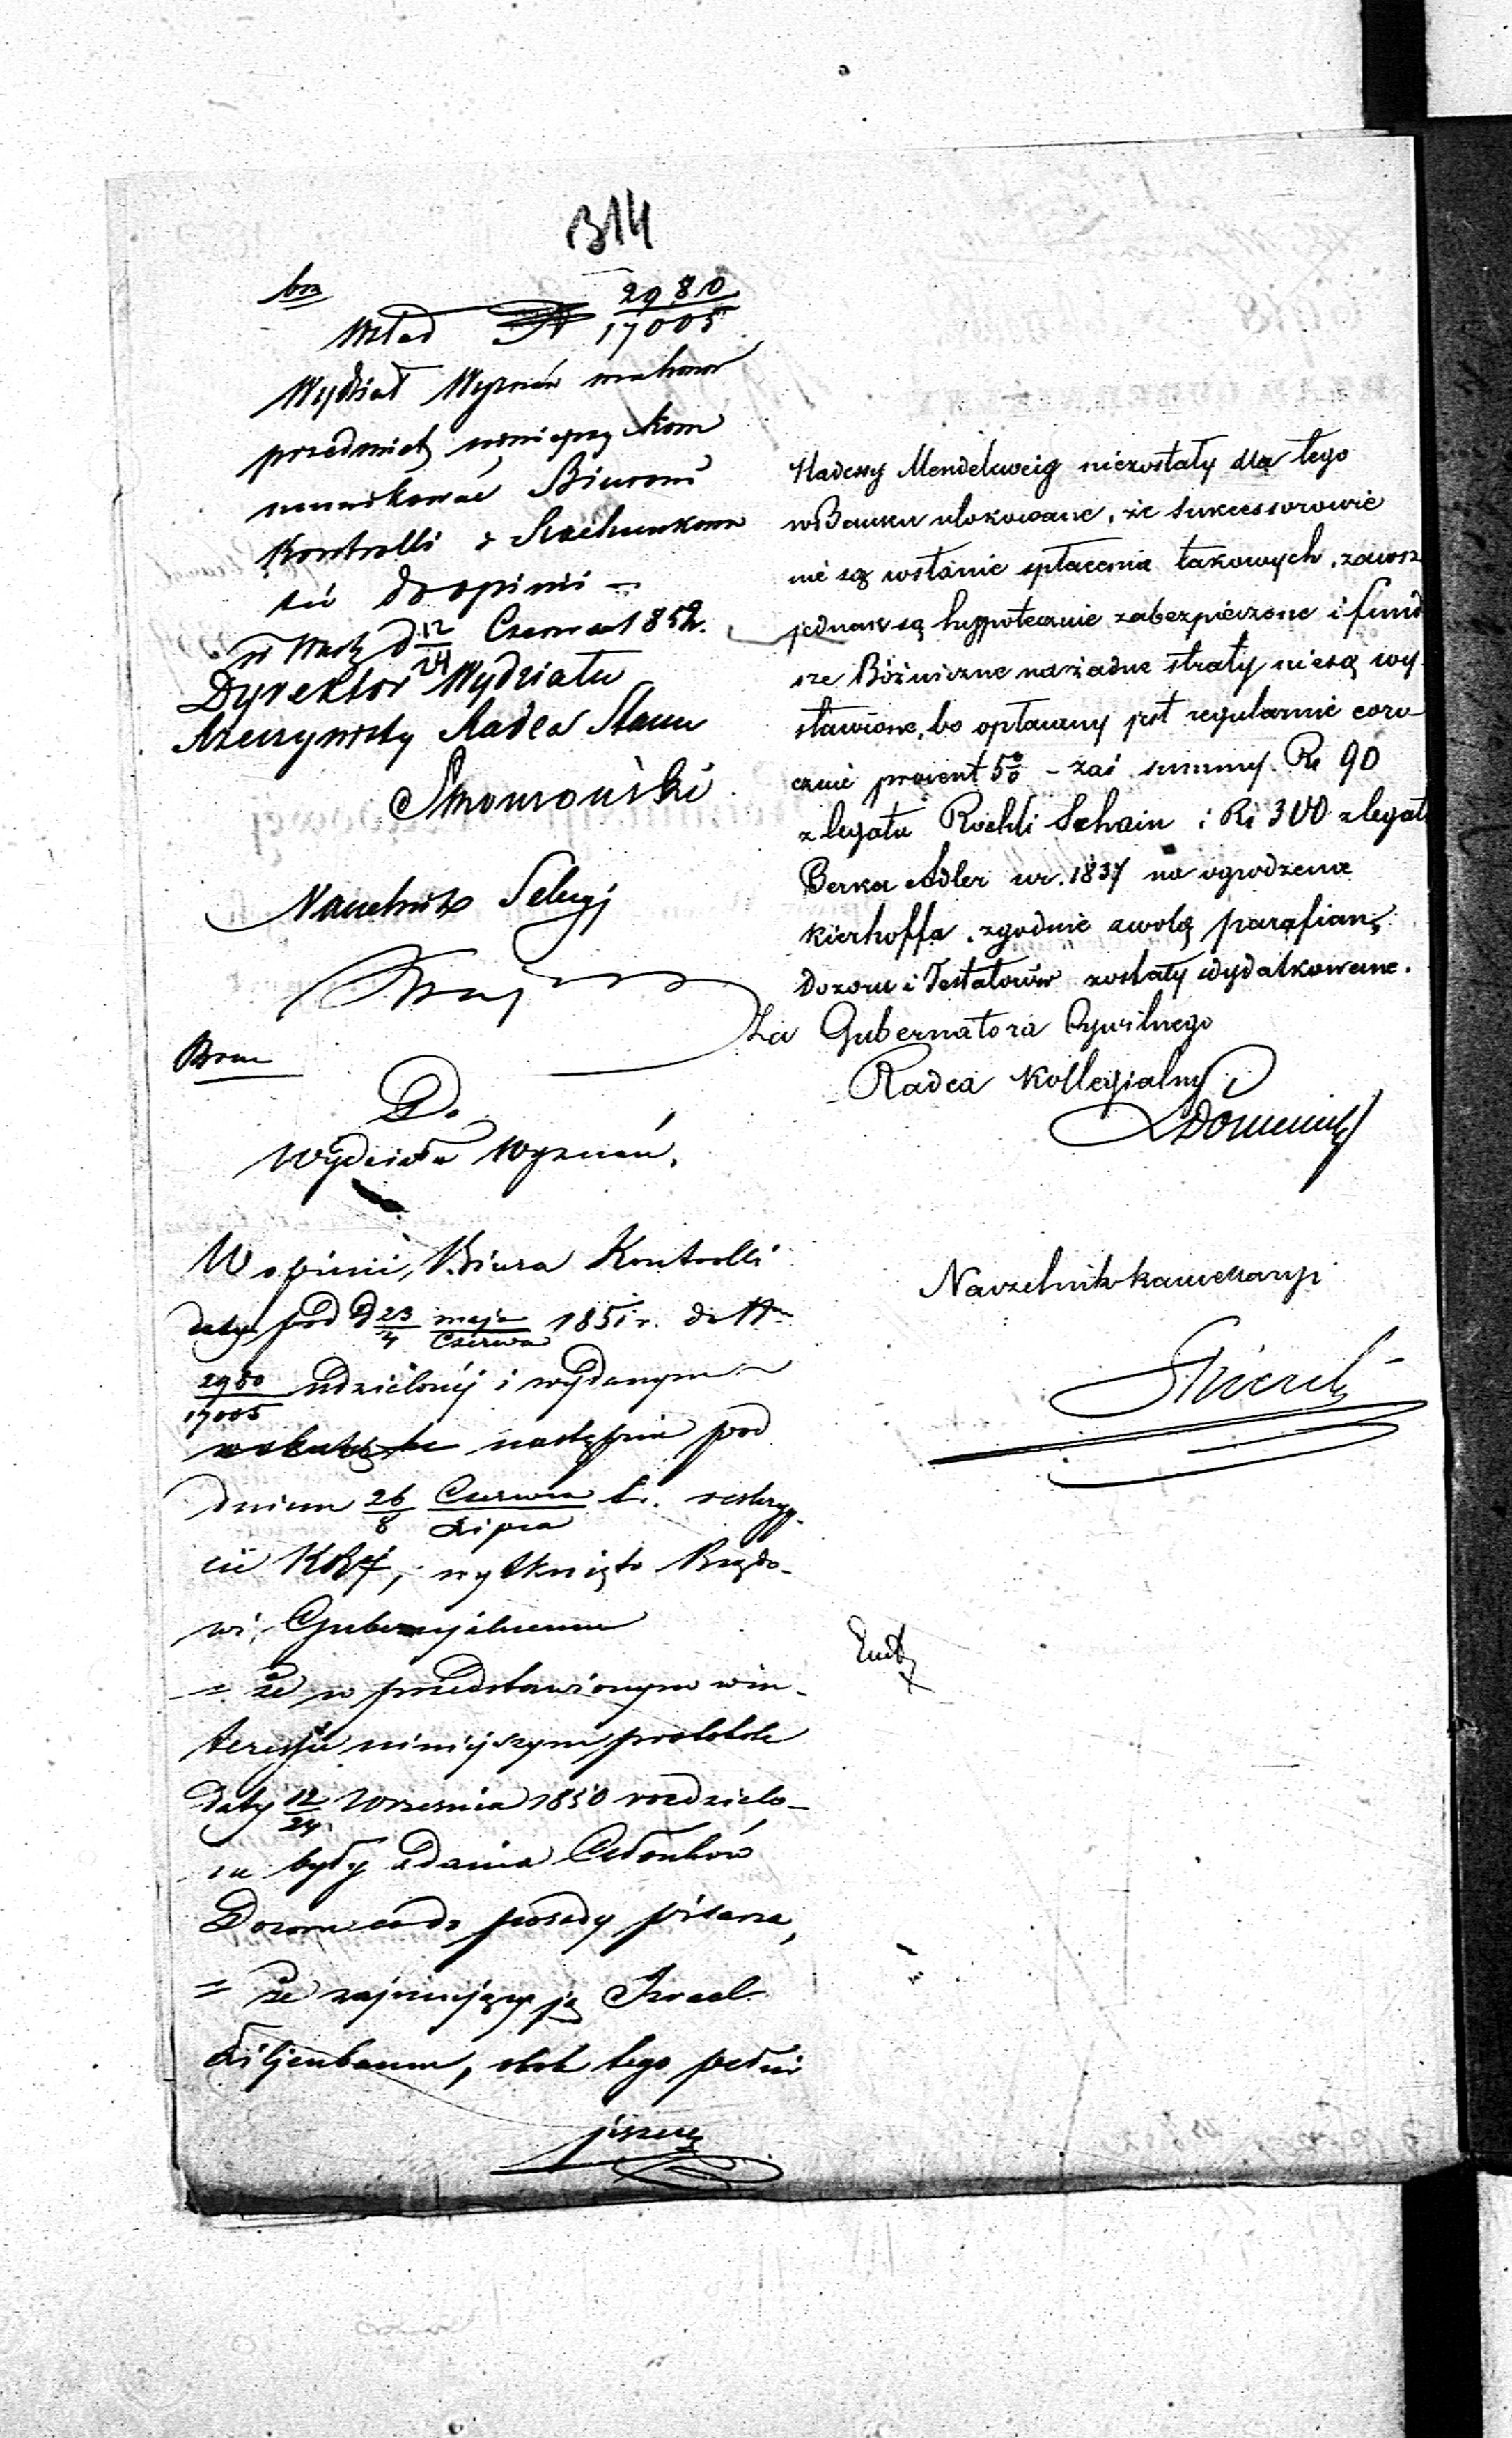 314
2980
17005
Wydział Wyznań
przedmiot niniejszy kom
munikować Biurowi
Kontrolli i Rachunkowo
ści do opinii —
d. 12/24 Czerwca 1852.
Dyrektor Wydziału
Rzeczywisty Radca Stanu
Naczelnik Sekcyi
Do
Wydziału Wyznań.
W opinii, Biura Kontrolli
daty pod d 23/4 maja/Czerwca 1851 r. do
2980/17005 udzielonéj i wydanym
następnie pod
dniem 26/8 Czerwca/Lipca t.r. reskryp-
cie wytknięto Rządo-
wi Gubernijalnemu
= że w przedstawionym w in-
teressie niniejszym protokole
daty 12/24 Września 1850 rozdzielo-
ne były zdania Członków
Dozoru co do posady pisarza,
= że zajmujący ją Izrael
Liljenbaum, obok tego pełni
jeszcze
Hadessy Mendelzweig niezostały dla tego
w Banku ulokowane, że sukcessorowie
nie są wstanie spłacenia takowych, zawsz
jednak są hypotecznie zabezpieczone i fund
sze Bóżniczne na żadne straty niesą wy
stawione, bo opłacany jest regularnie coro
cznie procent 5% – zaś summy Rs 90
z legatu Rochli Schain i Rs 300 z legat
Berka Adler w r. 1837 na ogrodzenie
Kierhoffa, zgodnie z wolą parafian,
Dozoru i Testatorów zostały wydatkowane.
Za Gubernatora Cywilnego
Radca Kollegialny
Naczelnik kancellaryi